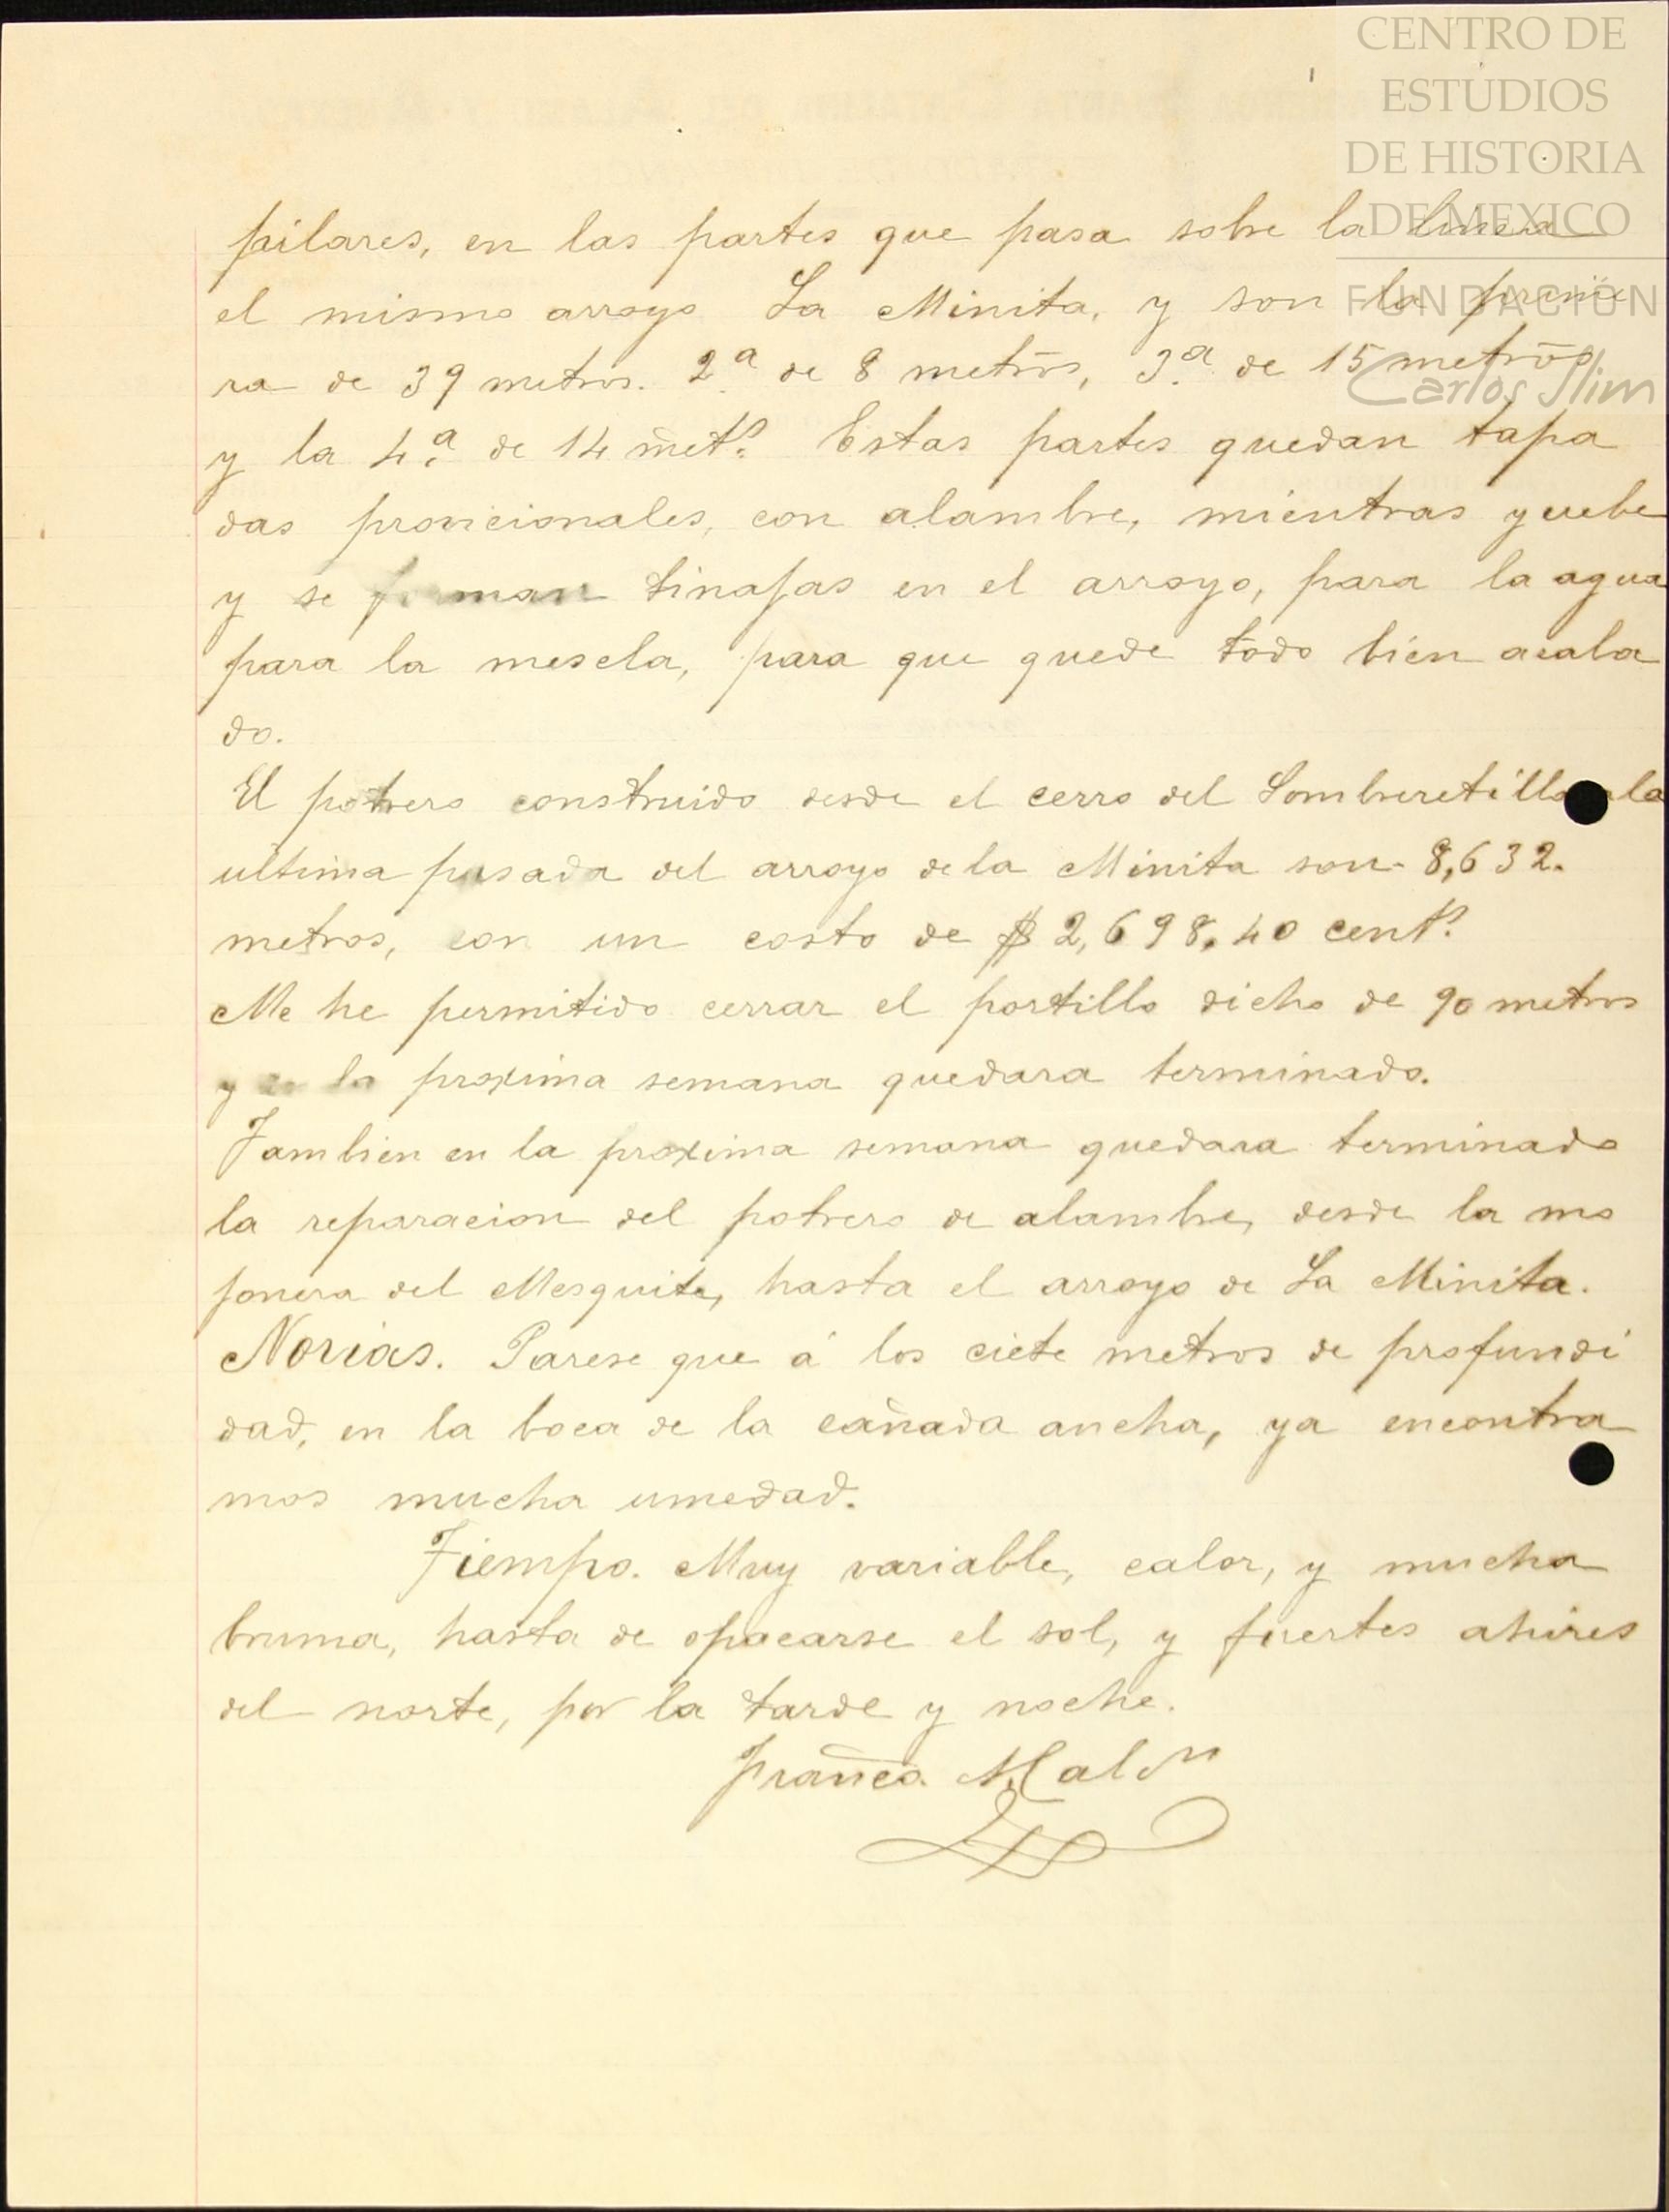 CENTRO DE
ESTUDIOS
DE HISTORIA
DE MEXICO
FUNDACIÓN
Carlos Slim
pilares, en las partes que pasa sobre la linea
el mismo arroyo La Minita, y son la prime
ra de 39 metros. 2ª de 8 metros, 3ª de 15 metros
y la 4ª de 14 metˢ. Estas partes quedan tapa
das provicionales, con alambre, mientras yuebe
y se forman tinajas en el arroyo, para la agua
para la mescla, para que quede todo bien acaba
do.
El potrero construido desde el cerro del Sombreretillo a la
ultima pasada del arroyo de la Minita son 8,632.
metros, con un costo de $2,698.40 centˢ.
Me he permitido cerrar el portillo dicho de 90 metros
y en la proxima semana quedara terminado.
Tambien en la proxima semana quedara terminado
la reparacion del potrero de alambre, desde la mo
jonera del Mesquite, hasta el arroyo de La Minita.
Norias. Parese que á los ciete metros de profundi
dad, en la boca de la cañada ancha, ya encontra
mos mucha umedad.
Tiempo. Muy variable, calor, y mucha
bruma, hasta de opacarse el sol, y fuertes ahires
del norte, por la tarde y noche.
Franco. Malᵈⁿ